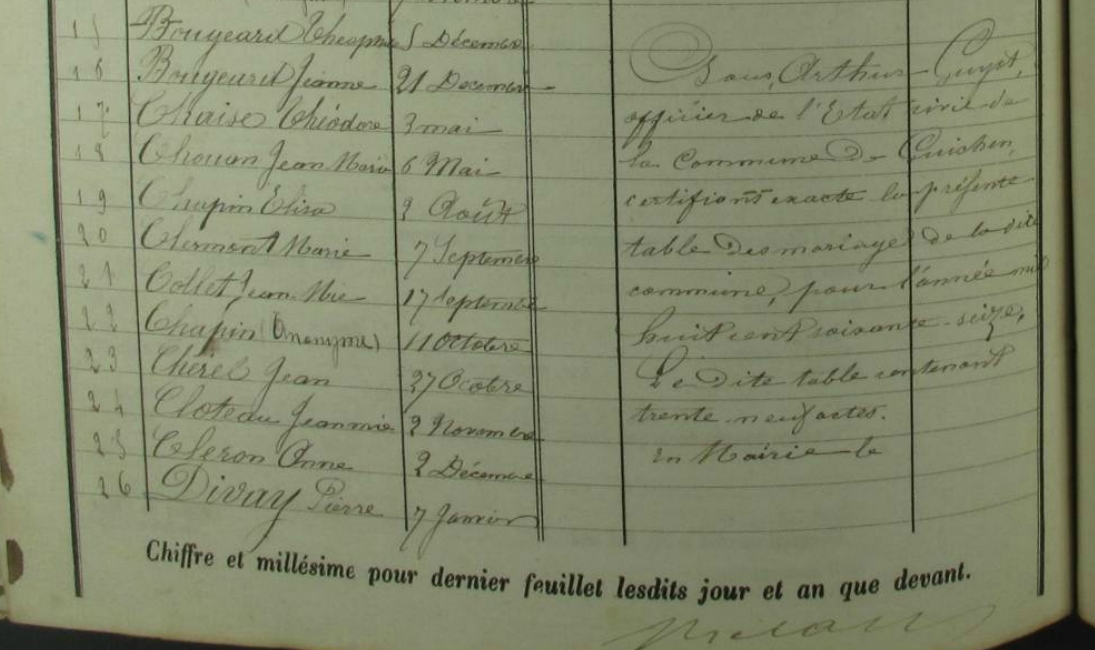 15 Bougeard Théophile 5 Décembre
16 Bougeard Jeanne 21 Décembre
17 Chaise Théodore 3 mai
18 Chouan Jean Marie 6 Mai
19 Chapin Elisa 2 Août
20 Clermont Marie 7 Septembre
21 Collet Jean Mie 17 Septembre
22 Chapin (Anonyme) 11 Octobre
23 Cherel Jean 27 Octobre
24 Cloteau Jeanmie 2 Novembre
25 Cleron Anne 2 Décembre
26 Divay Pierre 7 Janvier
Nous, Arthur Guyot,
officier de l'Etat civil de
la Commune de Guichen,
certifions exacte la présente
table des mariages de la dite
commune, pour l'année mil
huit cent soixante-seize,
La Dite table contenant
trente neuf actes.
En Mairie le
Chiffre et millésime pour dernier feuillet lesdits jour et an que devant.